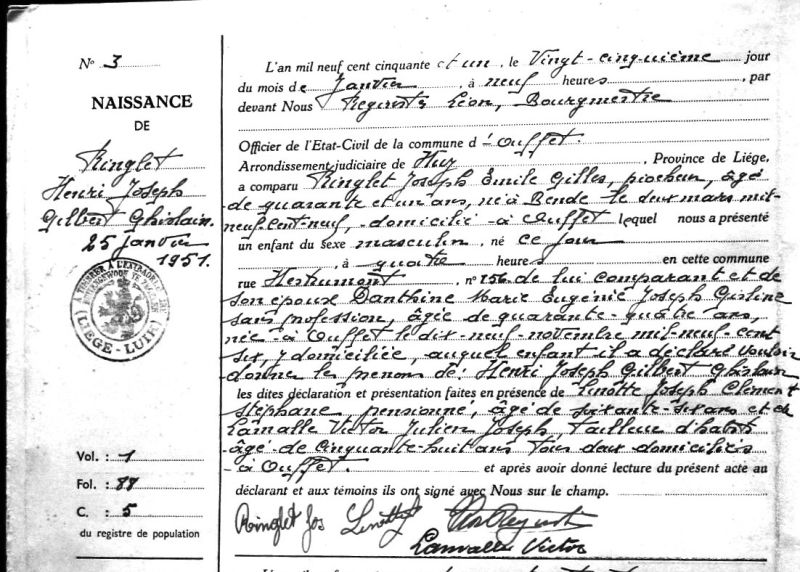 Nº 3
NAISSANCE
DE
Ringlet
Henri Joseph
Gilbert Ghislain.
25 janvier
1951.
LIÈGE-LUIK
Vol. : 1
Fol. : 88
C. : 5
du registre de population
L'an mil neuf cent cinquante et un, le Vingt-cinquième jour
du mois de Janvier, à neuf heures, par
devant Nous Léon, Bourgmestre
Officier de l'Etat-Civil de la commune d'Ouffet.
Arrondissement judiciaire de Huy, Province de Liége,
a comparu Ringlet Joseph Emile Gilles, piocheur, âgé
de quarante et un ans, né à Bende le deux mars mil-
neuf-cent-neuf, domicilié à Ouffet lequel nous a présenté
un enfant du sexe masculin, né ce jour
, à quatre heures en cette commune
rue Hestrumont, nº 156 de lui comparant et de
son épouse Danthine Marie Eugénie Joseph Gisline
sans profession, âgée de quarante-quatre ans,
née à Ouffet le dix-neuf novembre mil-neuf-cent
six, y domiciliée, auquel enfant il a déclaré vouloir
donner les prénoms de: Henri Joseph Gilbert Ghislain
les dites déclaration et présentation faites en présence de Linotte Joseph Clément
Stéphane, pensionné, âgé de soixante-six ans et de
Lamalle Victor Julien Joseph, tailleur d'habits
âgé de cinquante-huit ans tous deux domiciliés
à Ouffet. et après avoir donné lecture du présent acte au
déclarant et aux témoins ils ont signé avec Nous sur le champ.
Ringlet Jos Linotte
Lamalle Victor